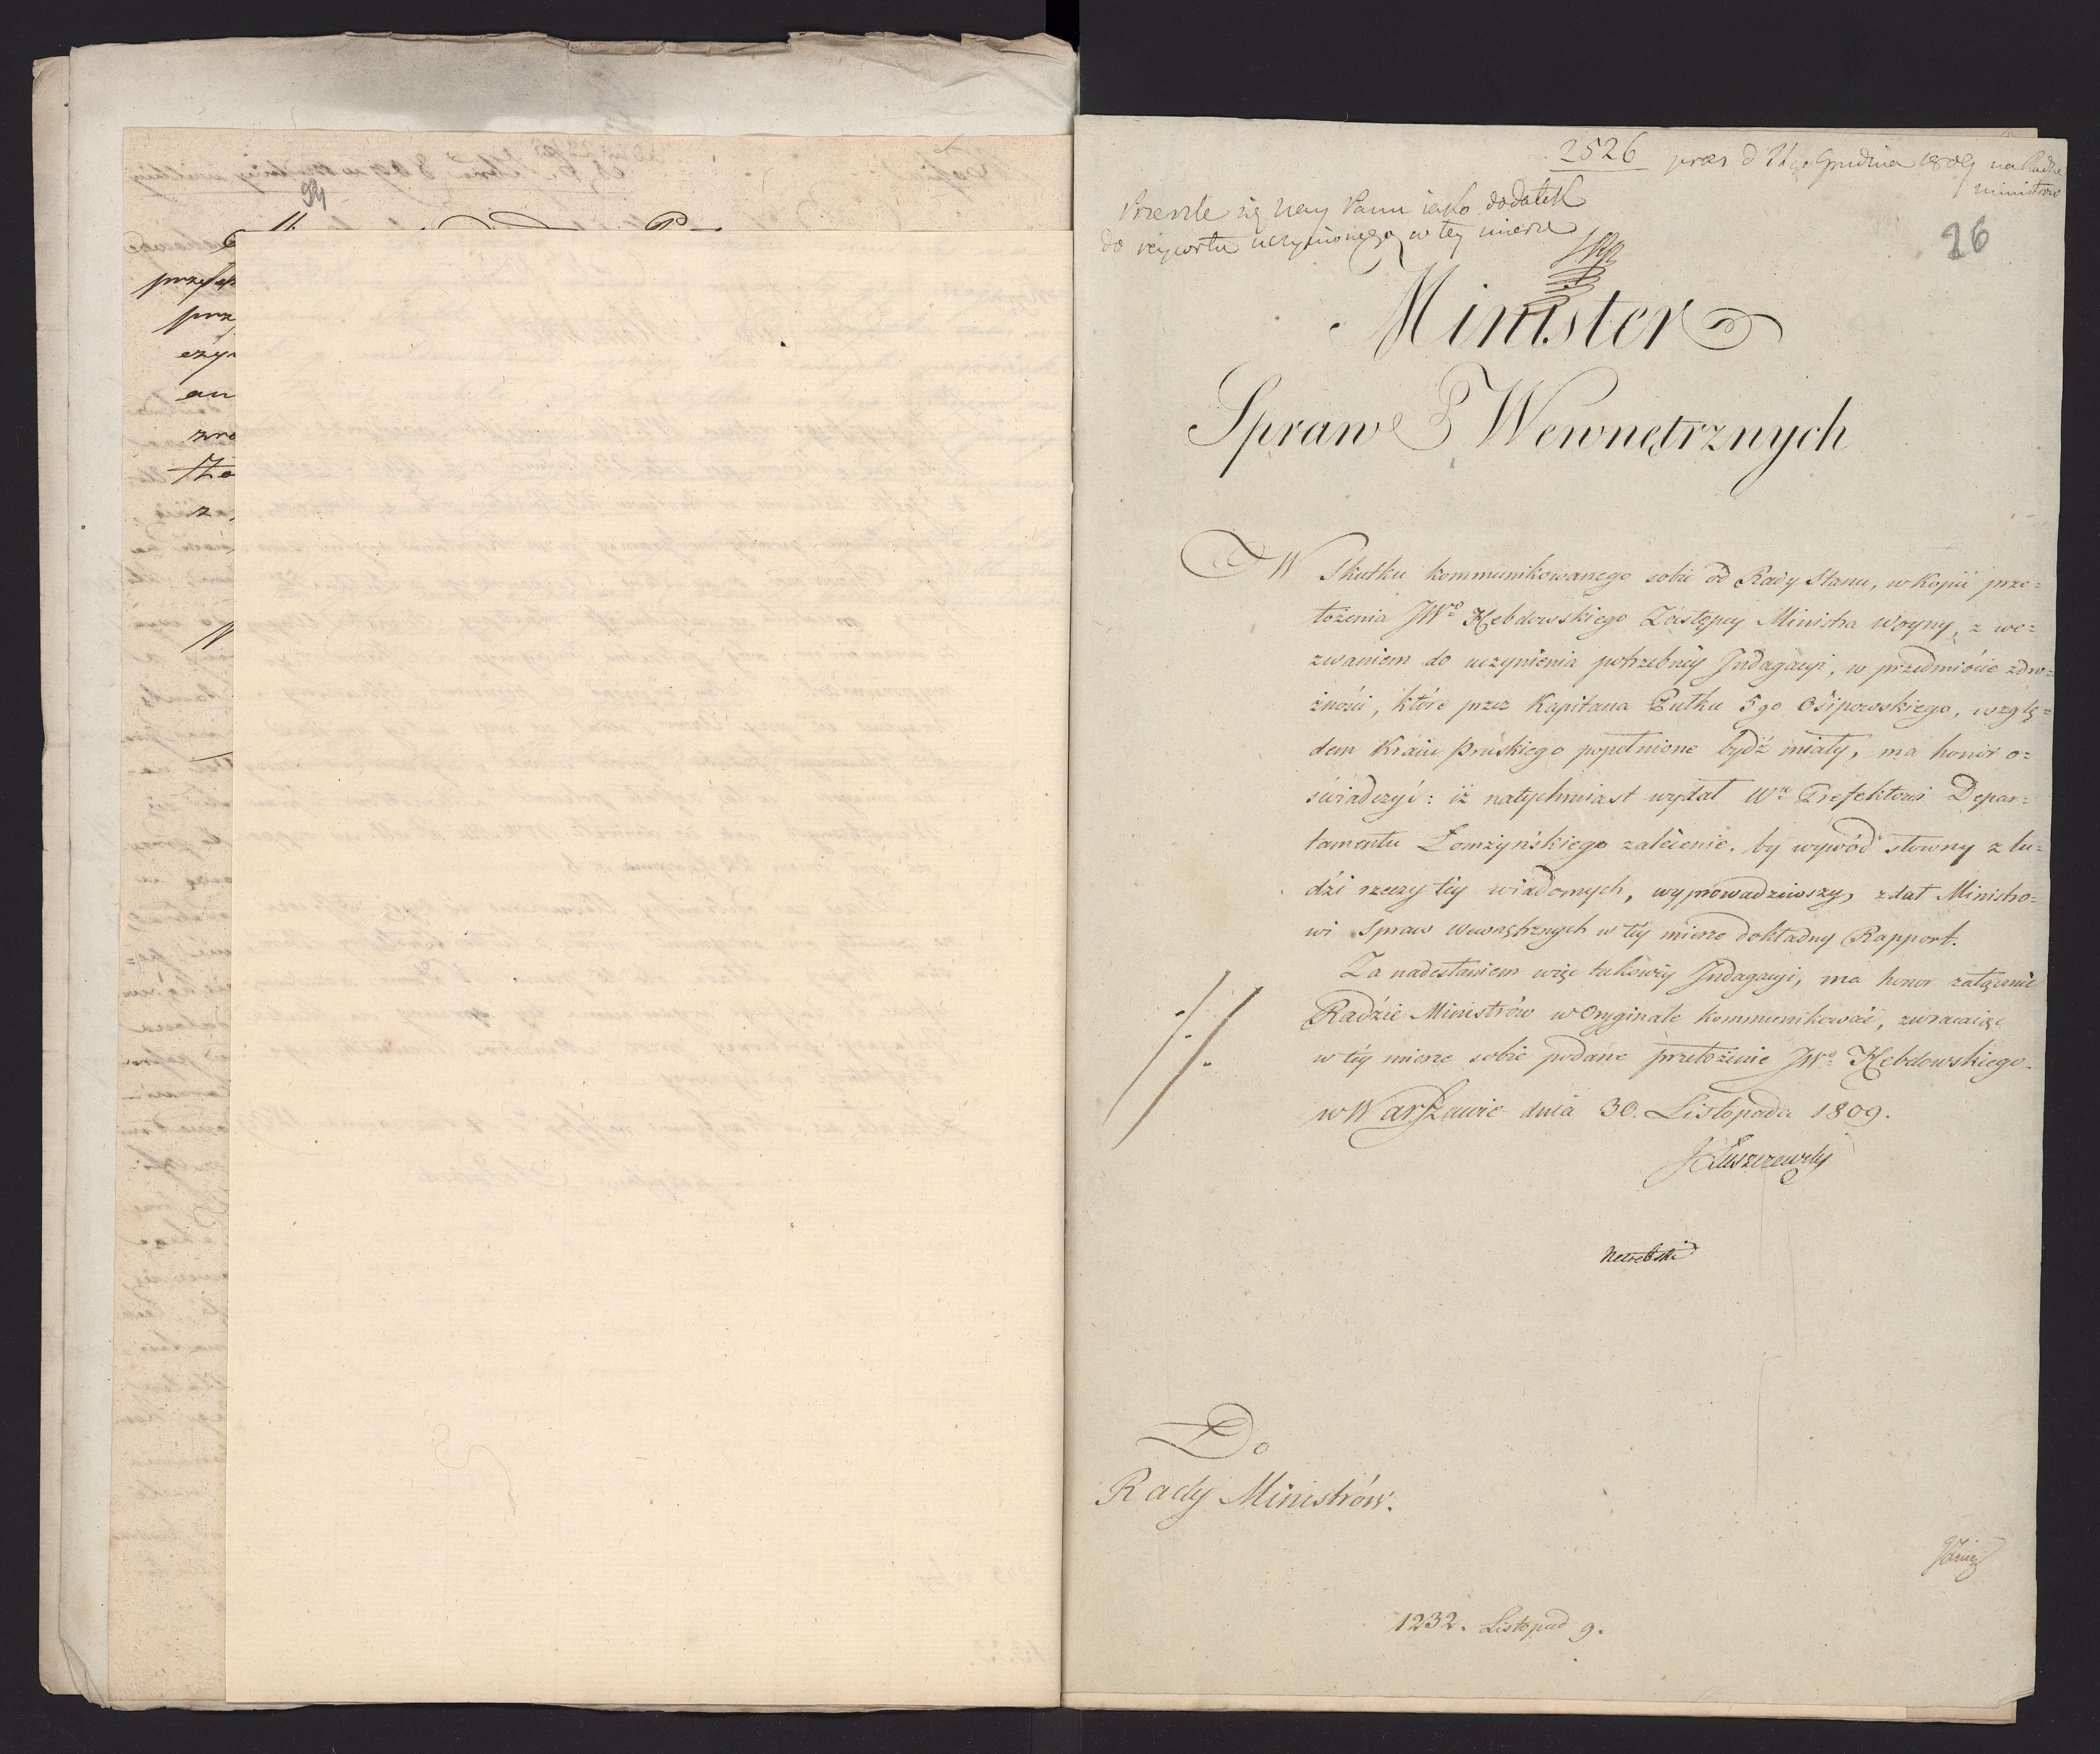 94
przeseł
prz
czyn
an
zro
2526 præs d 21go Grudnia 1809 na Radzie
Ministrow
26
Przesile się Naj Panu iako dodatek
do rapportu uczynionego w tey mierze
Minister
Spraw Wewnętrznych
W Skutku kommunikowanego sobie od Rady Stanu, w kopii prze=
łożenia JWo Hebdowskiego Zastępcy Ministra Woyny, z we=
zwaniem do uczynienia potrzebnéy Indagacyi, w przedmiocie zdro=
żności, które przez Kapitana Pułku 5go Osipowskiego, wzglę=
dem Kraiu Pruskiego popełnione bydź miały, ma honor o=
świadczyć: iż natychmiast wydał Wu Prefektowi Depar=
tamentu Łomżyńskiego zalecenie, by wywód słowny z lu=
dzi rzeczy téy wiadomych, wyprowadziwszy, zdał Ministro=
wi Spraw Wewnętrznych w téy mierze dokładny Rapport.
Za nadesłaniem więc takowéy Indagacyi, ma honor załącznie
Radzie Ministrów w Oryginale kommunikować, zwracaiąc
w téy mierze sobie podane przełożenie JWo Hebdowskiego.
w Warszawie dnia 30. Listopada 1809.
J Łuszczewski
Do
Rady Ministrów.
1232. Listopad 9.